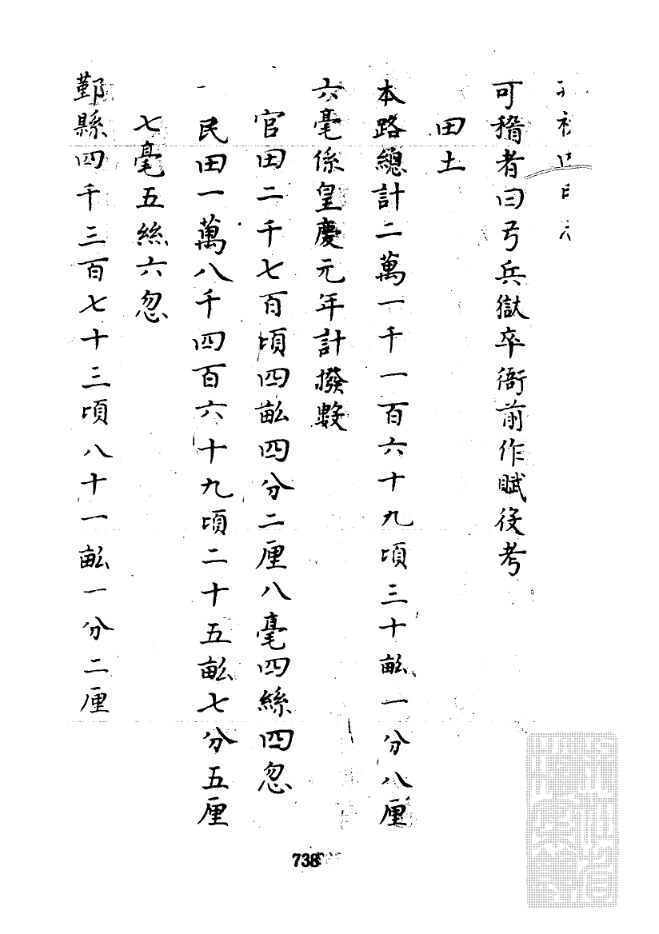 可稽者曰弓兵獄卒衙前作賦役考
田土
本路總計二萬一千一百六十九頃三十畝一分八厘
六毫係皇慶元年計撥數
官田二千七百頃四畝四分二厘八毫四絲四忽
民田一萬八千四百六十九頃二十五畝七分五厘
七毫五絲六忽
鄞縣四千三百七十三頃八十一畝一分二厘
738